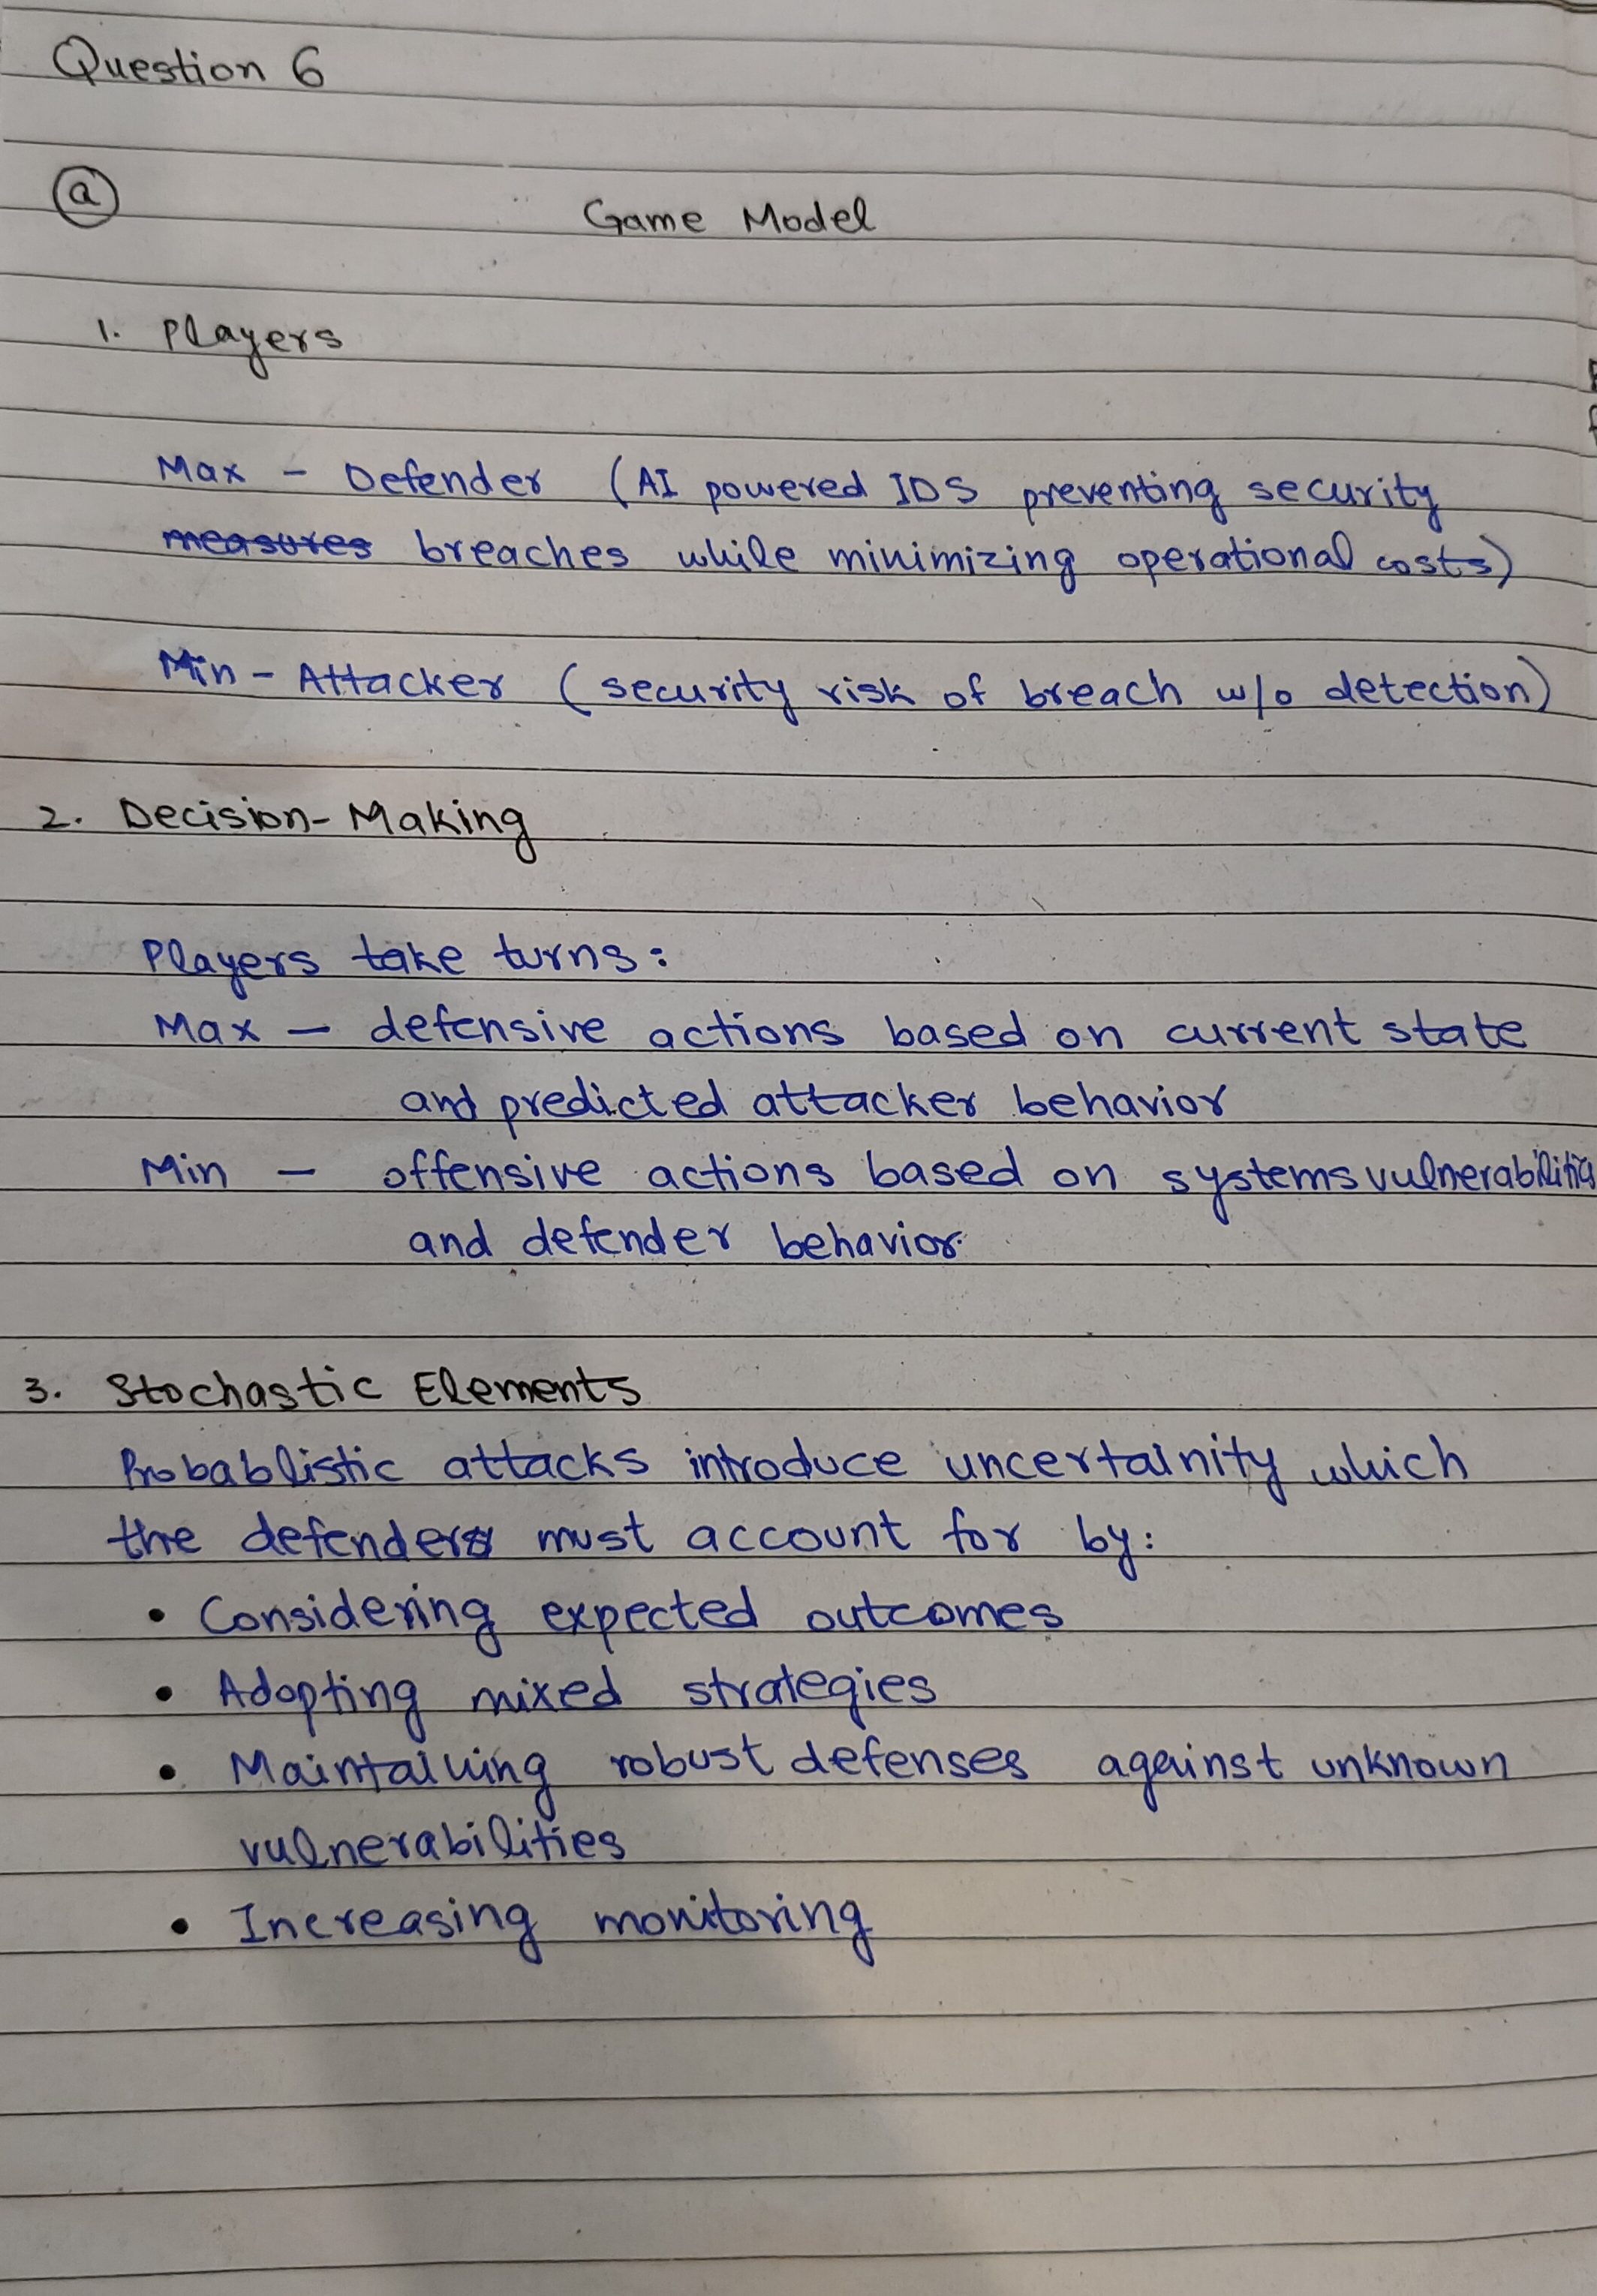 Question 6
a
Game Model
1. Players
Max - Defender (AI powered IDS preventing security
measures breaches while minimizing operational costs)
Min - Attacker (security risk of breach w/o detection)
2. Decision-Making
Players take turns:
Max - defensive actions based on current state
and predicted attacker behavior
Min - offensive actions based on systems vulnerabilities
and defender behavior.
3. Stochastic Elements
Probablistic attacks introduce uncertainity which
the defender must account for by:
• Considering expected outcomes
• Adopting mixed strategies
• Maintaining robust defenses against unknown
vulnerabilities
• Increasing monitoring